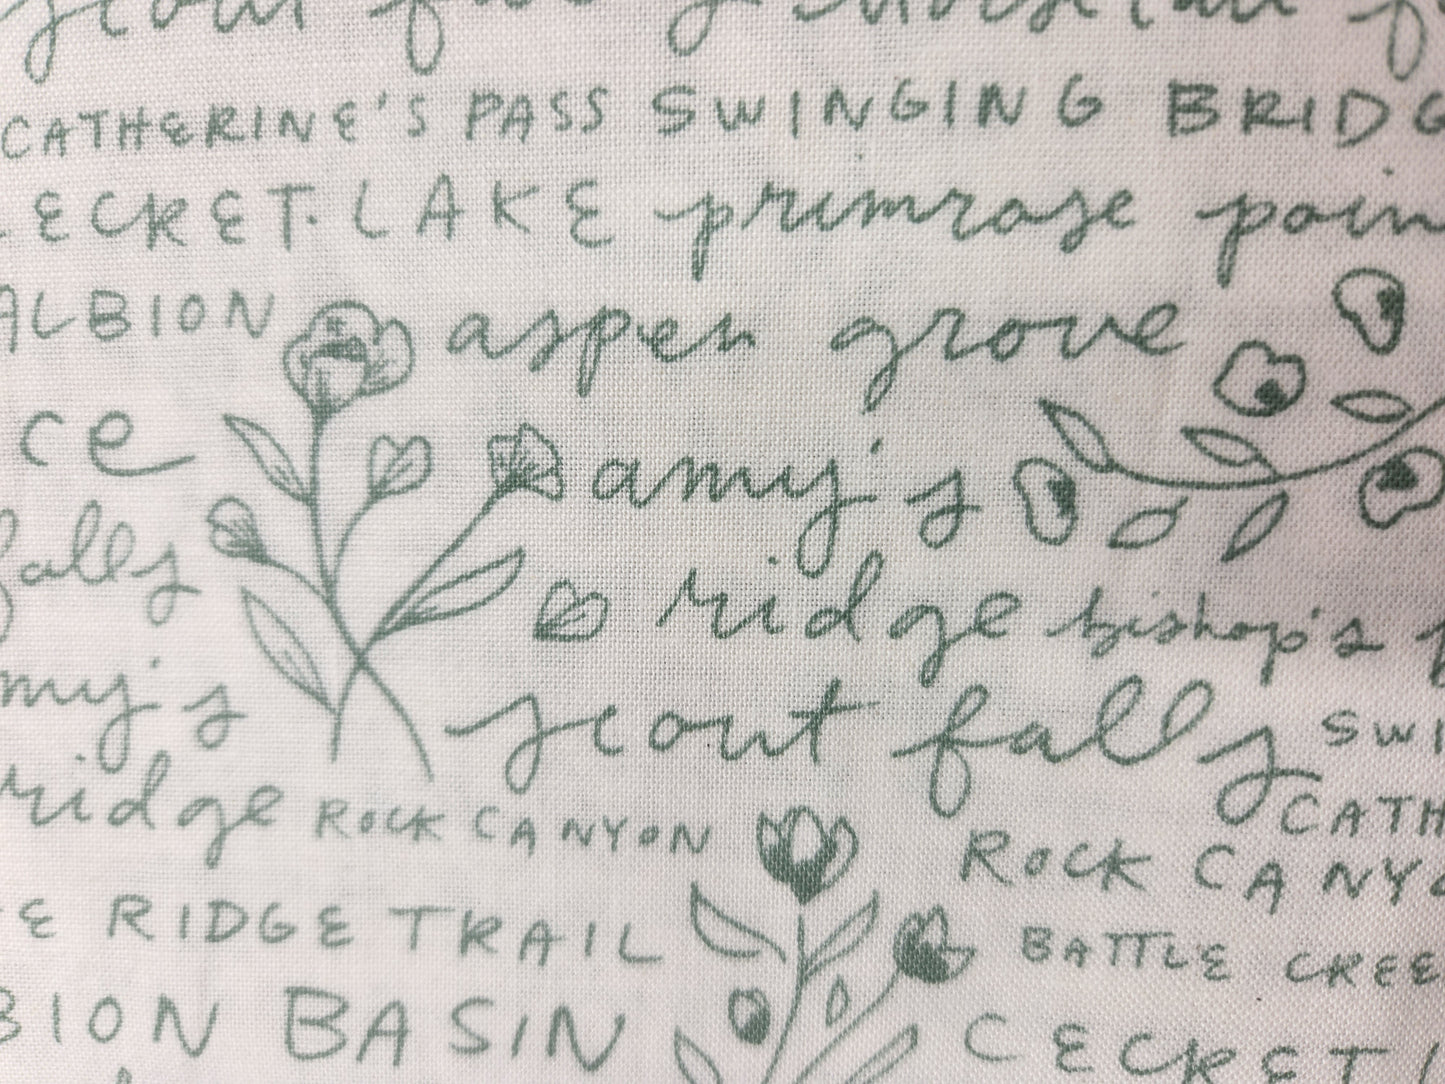 scout fa
CATHERINE'S PASS SWINGING BRIDG
ECRET LAKE primrose poin
ALBION aspen grove
ce amy's
falls ridge bishop's
my's scout falls SWI
ridge ROCK CANYON CATH
ROCK CANYO
E RIDGE TRAIL BATTLE CREE
BION BASIN CECRET